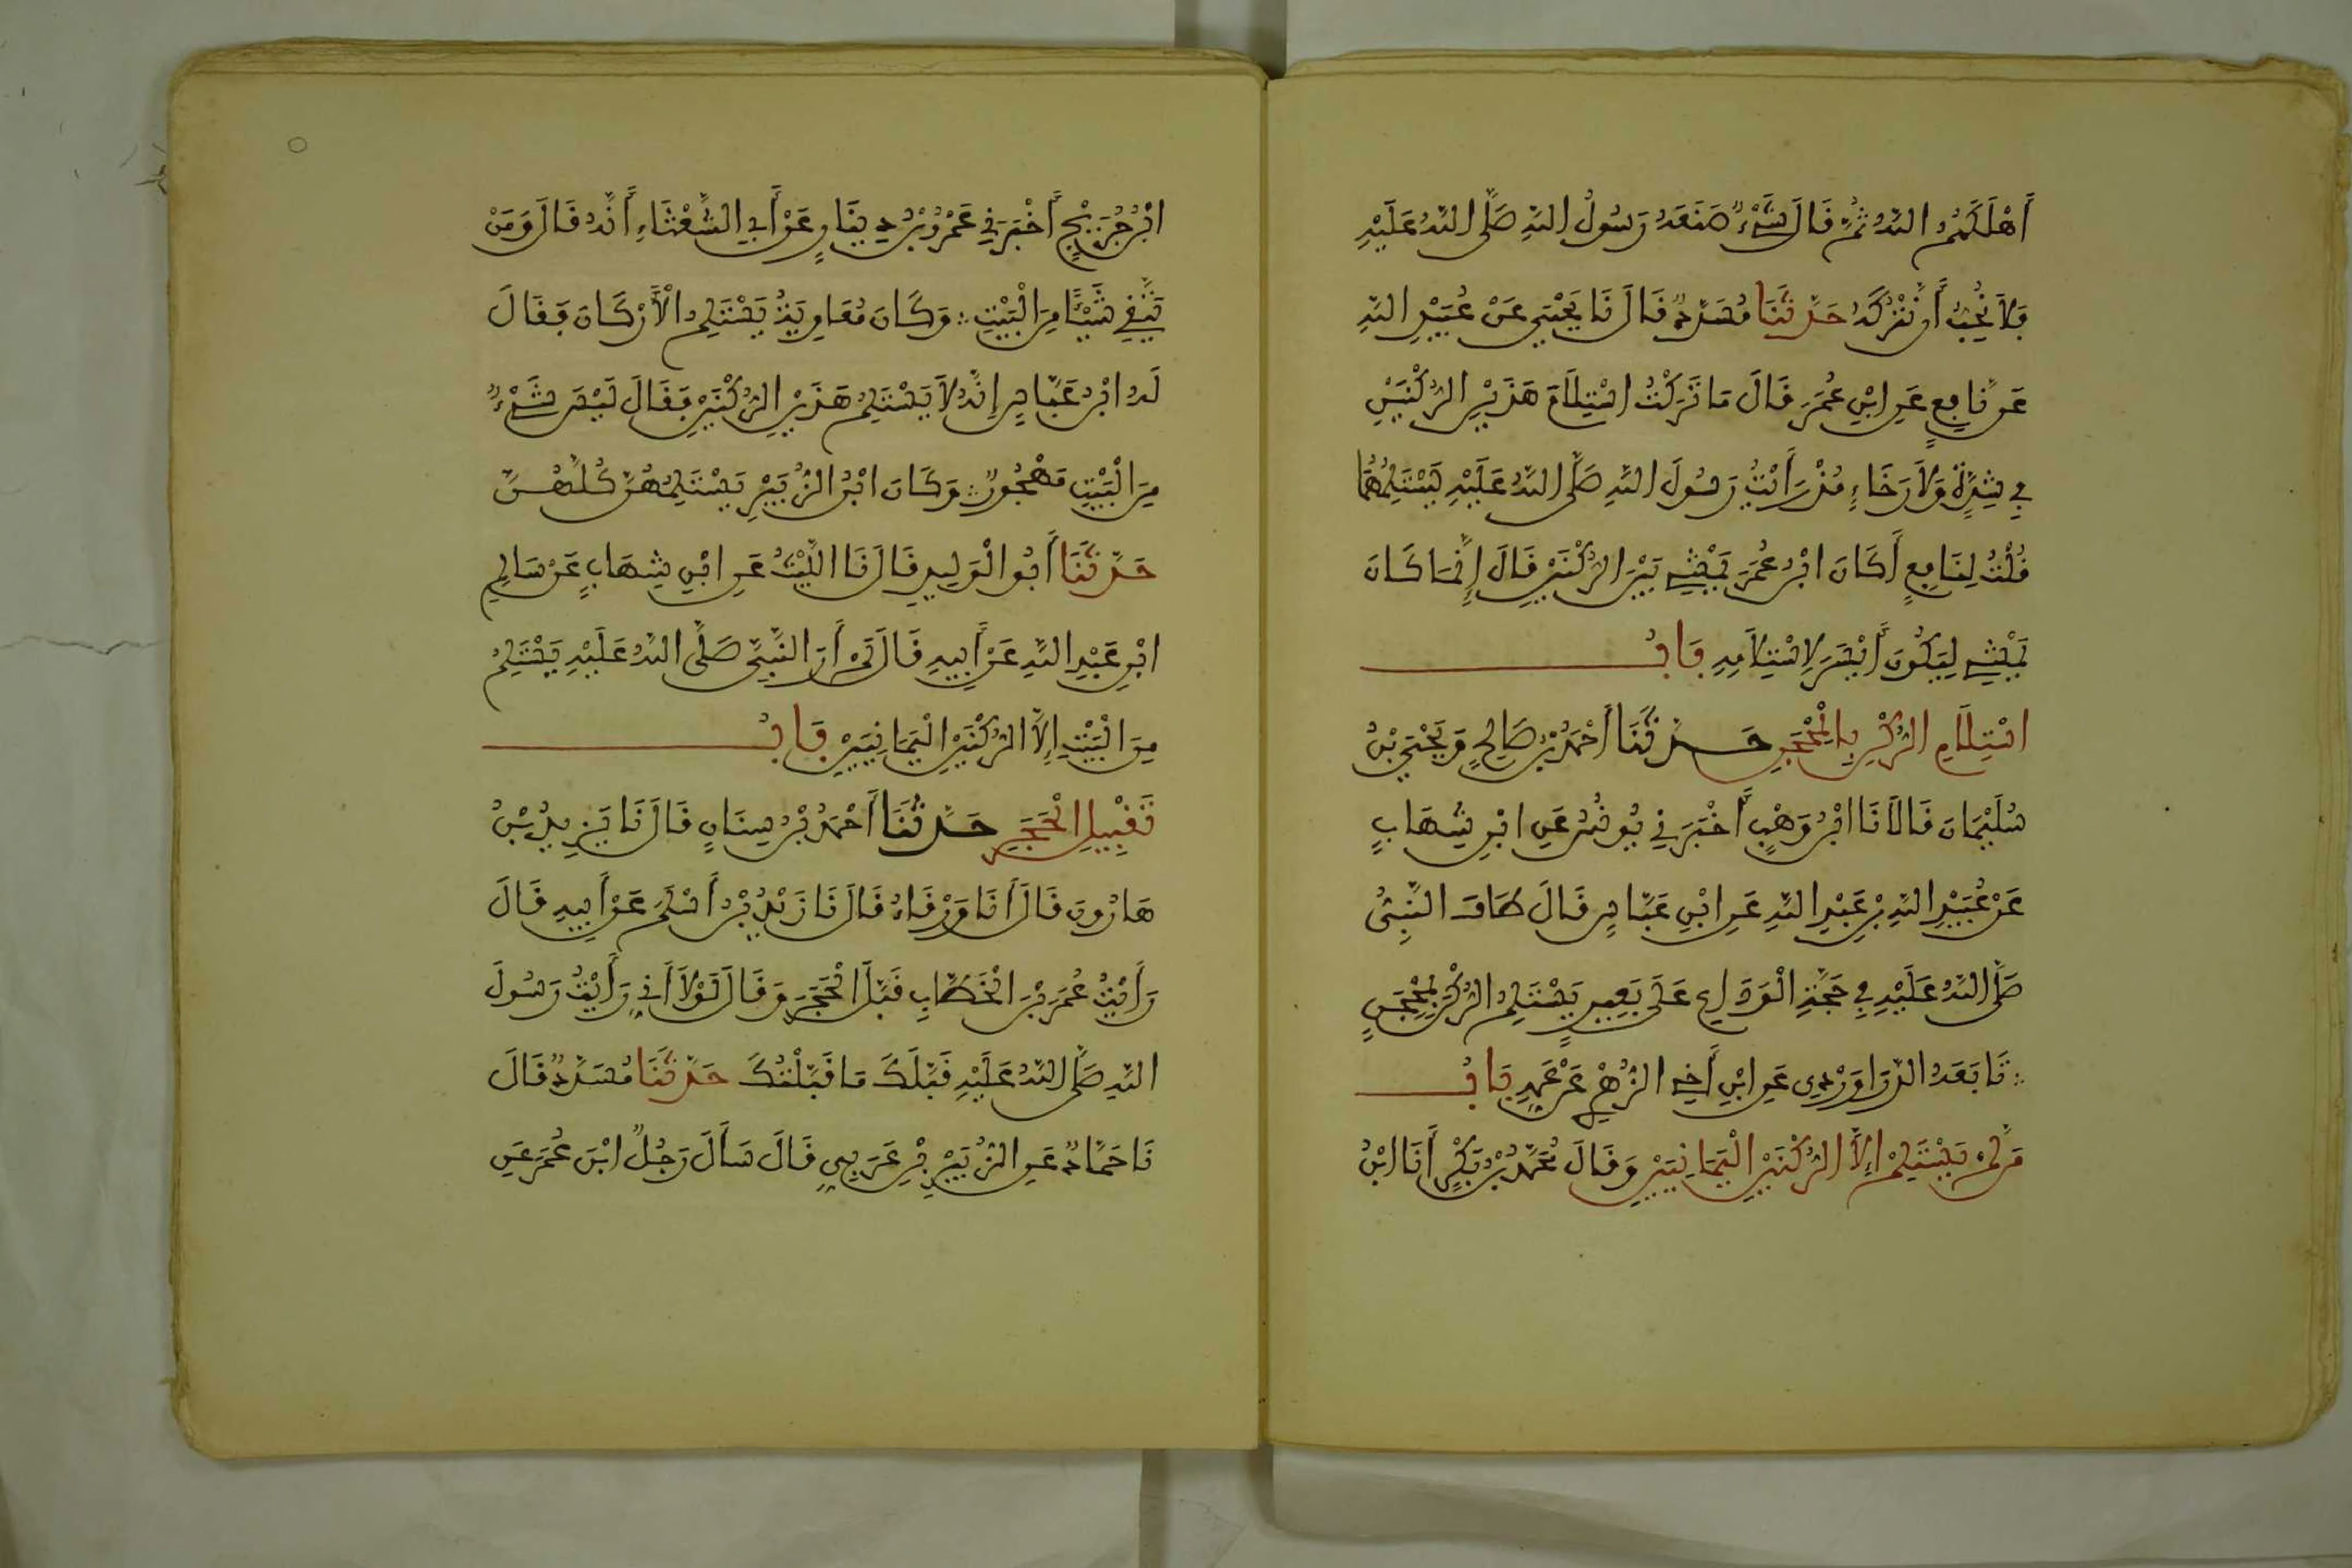 أَهْلَكَهُمُ اللَّهُ ثُمَّ قَالَ شَيْءٌ صَنَعَهُ رَسُولُ اللَّهِ صَلَّى اللَّهُ عَلَيْهِ
فَلَا نُحِبُّ أَنْ نَتْرُكَهُ حَدَّثَنَا مُسَدَّدٌ قَالَ نَا يَحْيَى عَنْ عُبَيْدِ اللَّهِ
عَنْ نَافِعٍ عَنِ ابْنِ عُمَرَ قَالَ مَا تَرَكْتُ اسْتِلَامَ هَذَيْنِ الرُّكْنَيْنِ
فِي شِدَّةٍ وَلَا رَخَاءٍ مُنْذُ رَأَيْتُ رَسُولَ اللَّهِ صَلَّى اللَّهُ عَلَيْهِ يَسْتَلِمُهُمَا
قُلْتُ لِنَافِعٍ أَكَانَ ابْنُ عُمَرَ يَمْشِي بَيْنَ الرُّكْنَيْنِ قَالَ إِنَّمَا كَانَ
يَمْشِي لِيَكُونَ أَيْسَرَ لِاسْتِلَامِهِ بَابُ
اسْتِلَامِ الرُّكْنِ بِالْمِحْجَنِ حَدَّثَنَا أَحْمَدُ بْنُ صَالِحٍ وَيَحْيَى بْنُ
سُلَيْمَانَ قَالَا نَا ابْنُ وَهْبٍ أَخْبَرَنِي يُونُسُ عَنِ ابْنِ شِهَابٍ
عَنْ عُبَيْدِ اللَّهِ بْنِ عَبْدِ اللَّهِ عَنِ ابْنِ عَبَّاسٍ قَالَ طَافَ النَّبِيُّ
صَلَّى اللَّهُ عَلَيْهِ فِي حَجَّةِ الْوَدَاعِ عَلَى بَعِيرٍ يَسْتَلِمُ الرُّكْنَ بِمِحْجَنٍ
تَابَعَهُ الدَّرَاوَرْدِي عَنِ ابْنِ أَخِي الزُّهْرِي عَنْ عَمِّهِ بَابُ
مَنْ لَمْ يَسْتَلِمْ إِلَّا الرُّكْنَيْنِ الْيَمَانِيَيْنِ وَقَالَ مُحَمَّدُ بْنُ بَكْرٍ أَنَا ابْنُ
ابْنُ جُرَيْجٍ أَخْبَرَنِي عَمْرُو بْنُ دِينَارٍ عَنْ أَبِي الشَّعْثَاءِ أَنَّهُ قَالَ وَمَنْ
يَتَّقِي شَيْئًا مِنَ الْبَيْتِ وَكَانَ مُعَاوِيَةُ يَسْتَلِمُ الْأَرْكَانَ فَقَالَ
لَهُ ابْنُ عَبَّاسٍ إِنَّهُ لَا يَسْتَلِمُ هَذَيْنِ الرُّكْنَيْنِ فَقَالَ لَيْسَ شَيْءٌ
مِنَ الْبَيْتِ مَهْجُورٌ وَكَانَ ابْنُ الزُّبَيْرِ يَسْتَلِمُهُنَّ كُلَّهُنَّ
حَدَّثَنَا أَبُو الْوَلِيدِ قَالَ نَا اللَّيْثُ عَنِ ابْنِ شِهَابٍ عَنْ سَالِمِ
ابْنِ عَبْدِ اللَّهِ عَنْ أَبِيهِ قَالَ لَمْ أَرَ النَّبِيَّ صَلَّى اللَّهُ عَلَيْهِ يَسْتَلِمُ
مِنَ الْبَيْتِ إِلَّا الرُّكْنَيْنِ الْيَمَانِيَيْنِ بَابُ
تَقْبِيلِ الْحَجَرِ حَدَّثَنَا أَحْمَدُ بْنُ سِنَانٍ قَالَ نَا يَزِيدُ بْنُ
هَارُونَ قَالَ أَنَا وَرْقَاءُ قَالَ نَا زَيْدُ بْنُ أَسْلَمَ عَنْ أَبِيهِ قَالَ
رَأَيْتُ عُمَرَ بْنَ الْخَطَّابِ قَبَّلَ الْحَجَرَ وَقَالَ لَوْلَا أَنِّي رَأَيْتُ رَسُولَ
اللَّهِ صَلَّى اللَّهُ عَلَيْهِ قَبَّلَكَ مَا قَبَّلْتُكَ حَدَّثَنَا مُسَدَّدٌ قَالَ
نَا حَمَّادٌ عَنِ الزُّبَيْرِ بْنِ عَرَبِيٍّ قَالَ سَأَلَ رَجُلٌ ابْنَ عُمَرَ عَنِ